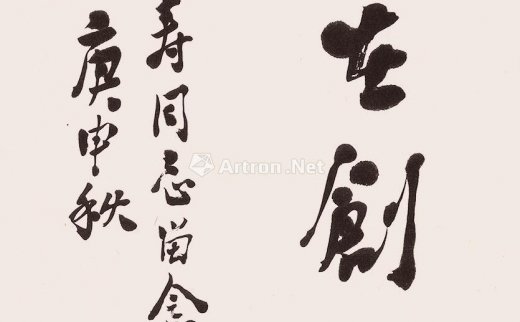 在創
寿同志留念
庚申秋
Artron.Net